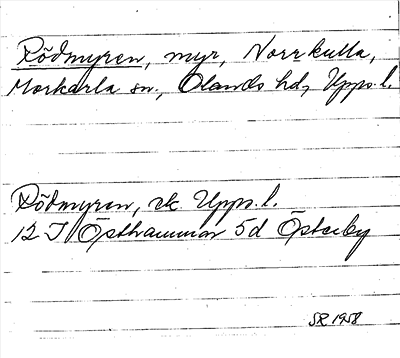 Rödmyren, myr, Norrkulla,
Morkarla sn., Olands hd, Upps.l.
Rödmyren, ek Upps.l.
12 I Östhammar 5d Österby
SR 1958